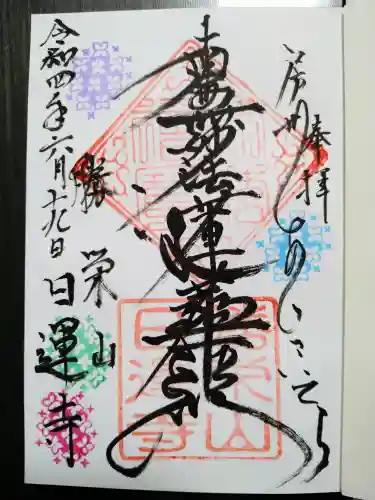 奉拝
房州 あじさいでら
南無妙法蓮華経
勝栄山
日運寺
令和四年六月十九日